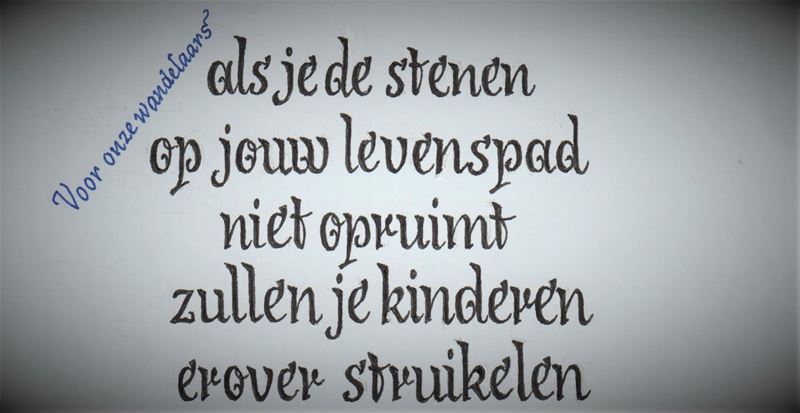 Voor onze wandelaars
als je de stenen
op jouw levenspad
niet opruimt
zullen je kinderen
erover struikelen